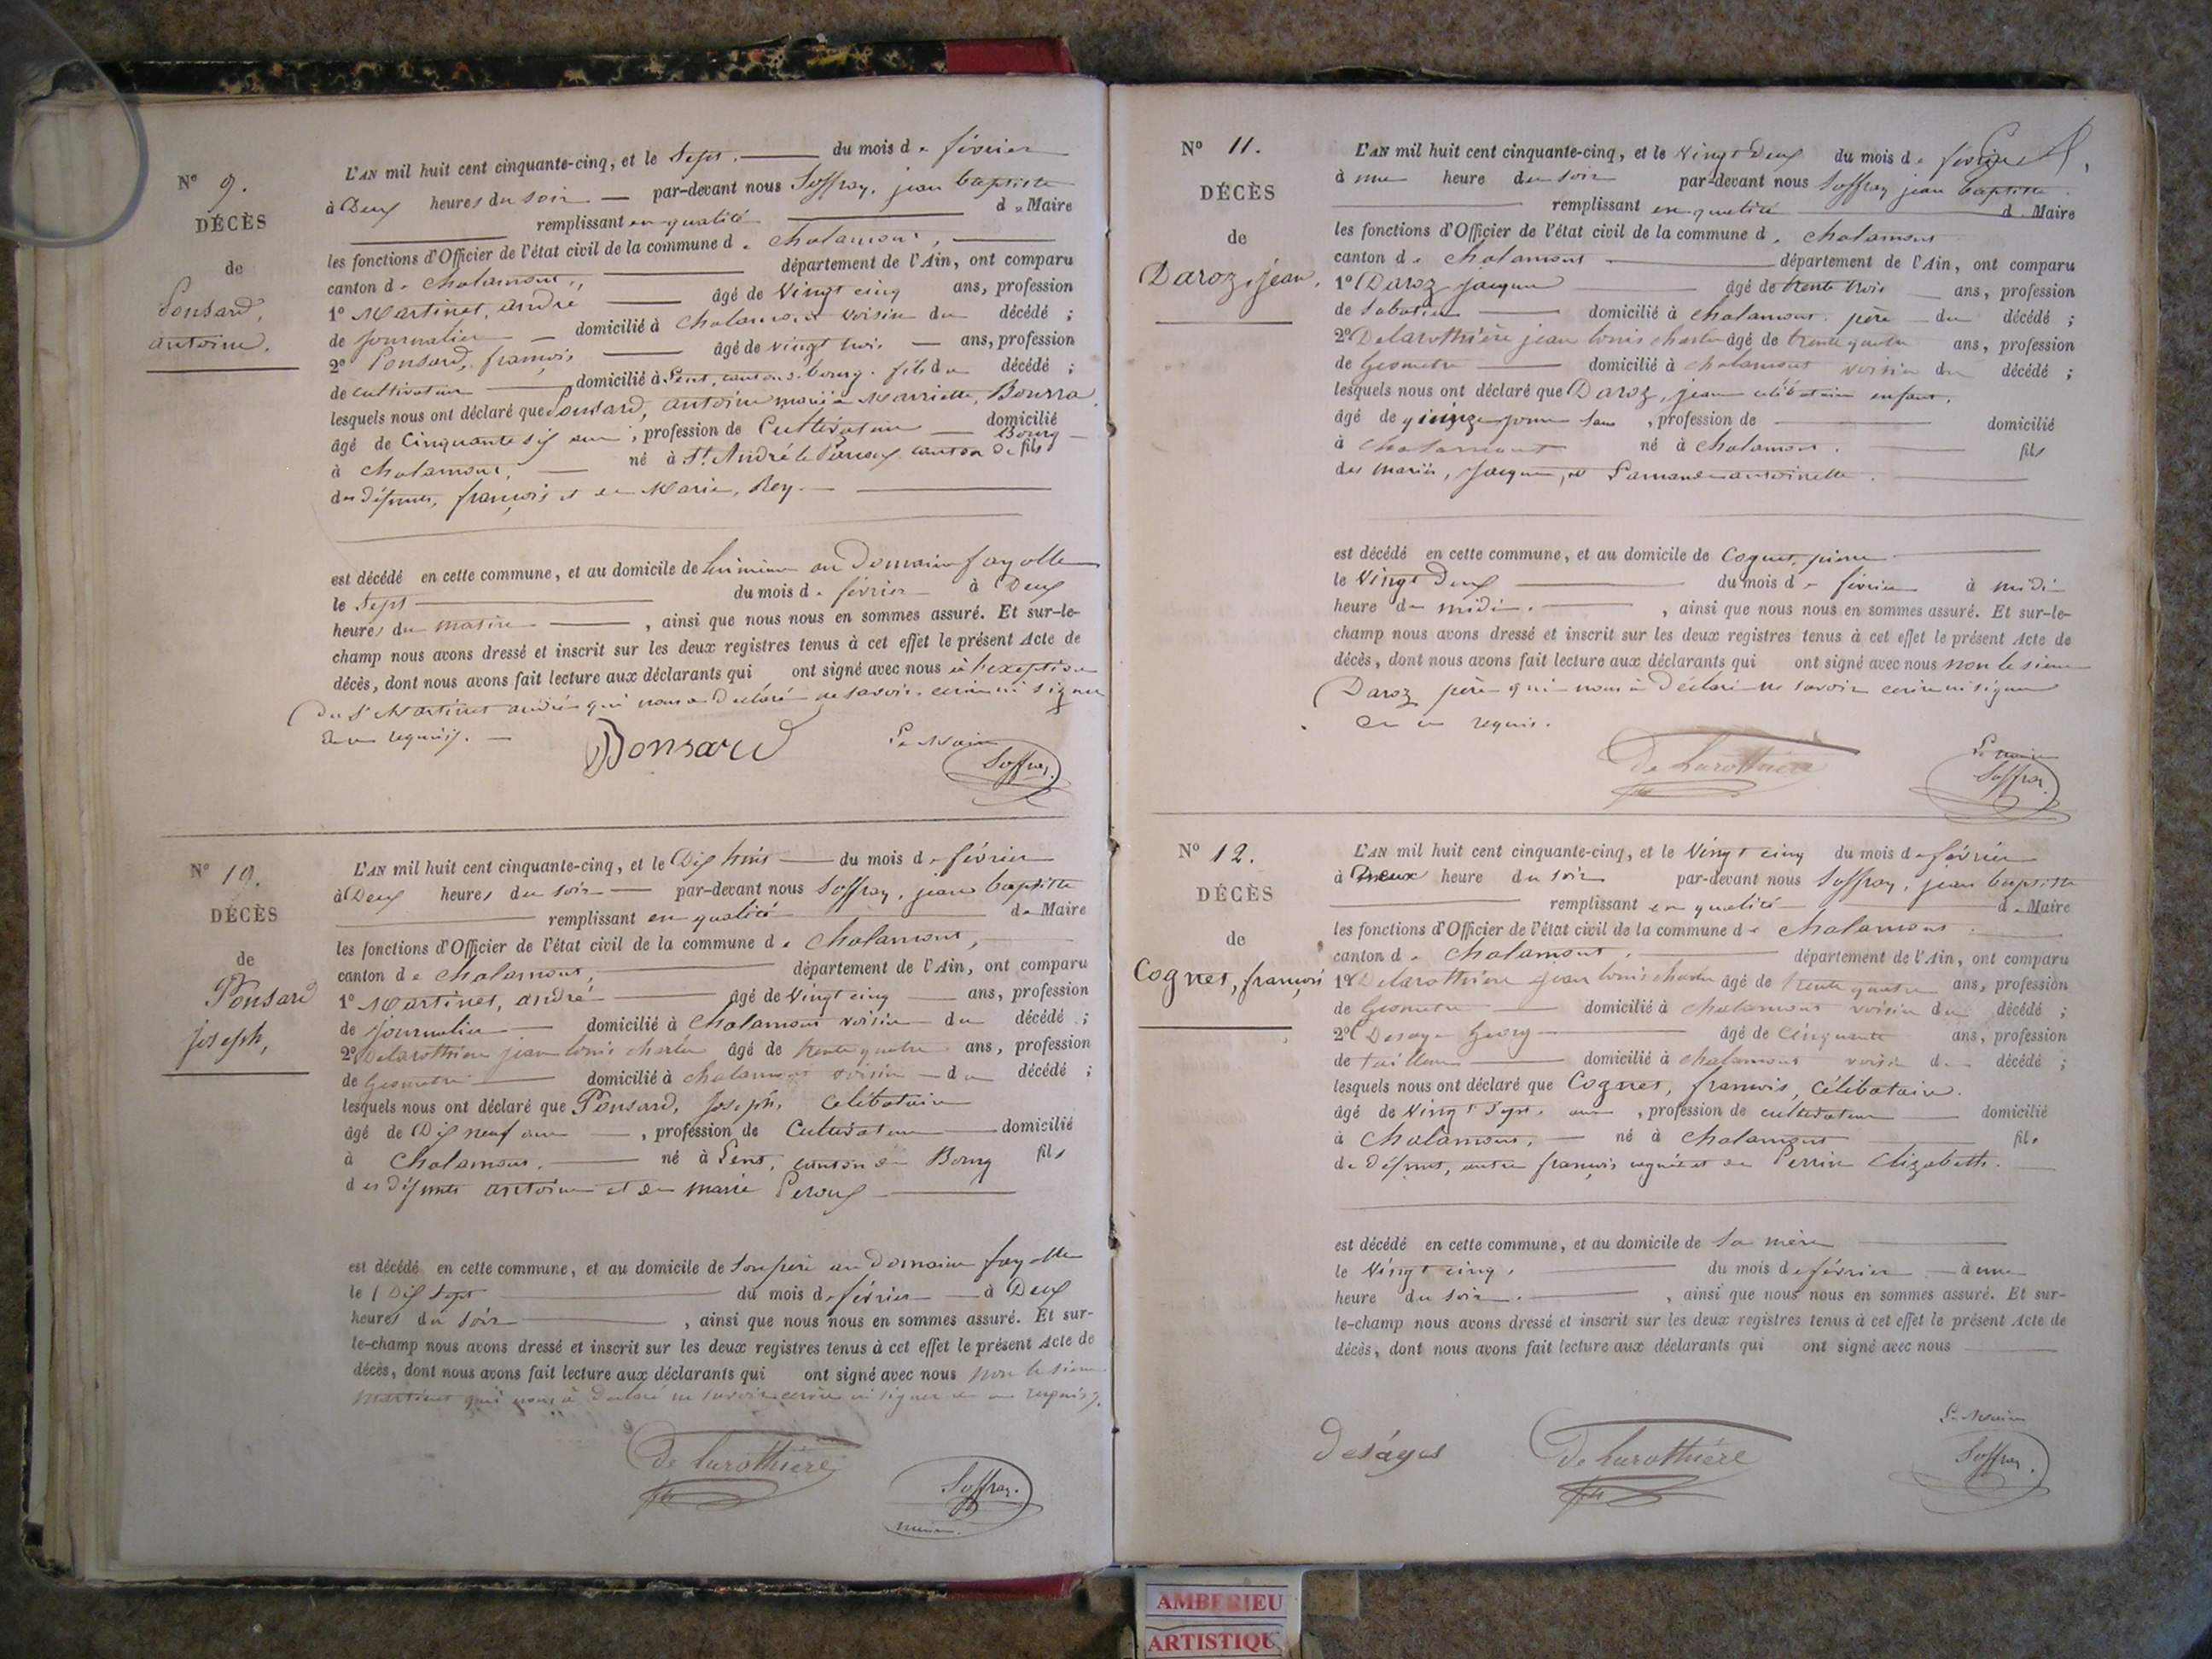 N° 9.
DÉCÈS
de
Ponsard,
antoine.
L'AN mil huit cent cinquante-cinq, et le Sept. du mois de février
à Deux heures du soir par-devant nous Soffray, jean baptiste
remplissant en qualité de Maire
les fonctions d'Officier de l'état civil de la commune de Chalamont,
canton de Chalamont, département de l'Ain, ont comparu
1° Martinet, andré âgé de Vingt cinq ans, profession
de journalier domicilié à Chalamont voisin du décédé ;
2° Ponsard, françois âgé de vingt trois ans, profession
de cultivateur domicilié à Lent, canton de bourg. fils du décédé ;
lesquels nous ont déclaré que Ponsard, antoine marié à Mariette, Bourra
âgé de Cinquante six ans, profession de Cultivateur domicilié
à Chalamont, né à St. André le Panoux canton de Bourg fils
des défunts, françois et de Marie, Rey.
est décédé en cette commune, et au domicile de lui même au Domaine fayolle
le Sept du mois de février à Deux
heures du matin, ainsi que nous nous en sommes assuré. Et sur-le-
champ nous avons dressé et inscrit sur les deux registres tenus à cet effet le présent Acte de
décès, dont nous avons fait lecture aux déclarants qui ont signé avec nous à l'exeption
du Sr Martinet andré qui nous a declaré ne savoir ecrire ni signer
de ce requis.
Ponsard
Le Maire
Soffray.
N° 10.
DÉCÈS
de
Ponsard
joseph,
L'AN mil huit cent cinquante-cinq, et le Dix huit du mois de février
à Deux heures du soir par-devant nous Soffray, jean baptiste
remplissant en qualité de Maire
les fonctions d'Officier de l'état civil de la commune de Chalamont,
canton de Chalamont, département de l'Ain, ont comparu
1° Martinet, andré âgé de Vingt cinq ans, profession
de journalier domicilié à Chalamont voisin du décédé ;
2° Delarothière jean louis charles âgé de trente quatre ans, profession
de Géomètre domicilié à chalamont voisin du décédé ;
lesquels nous ont déclaré que Ponsard, joseph, Célibataire
âgé de Dix neuf ans, profession de Cultivateur domicilié
à Chalamont. né à Lent, canton de Bourg fils
des défunts antoine et de marie Peroux
est décédé en cette commune, et au domicile de son père au Domaine fayolle
le Dix Sept du mois de février à Deux
heures du soir, ainsi que nous nous en sommes assuré. Et sur-
le-champ nous avons dressé et inscrit sur les deux registres tenus à cet effet le présent Acte de
décès, dont nous avons fait lecture aux déclarants qui ont signé avec nous non le sieur
Martinet qui nous à declaré ne savoir ecrire ni signer de ce requis.
De Larothière
Soffray.
maire.
N° 11.
DÉCÈS
de
Daroz, jean.
L'AN mil huit cent cinquante-cinq, et le Vingt Deux du mois de février
à une heure du soir par-devant nous Soffray jean baptiste
remplissant en qualité de Maire
les fonctions d'Officier de l'état civil de la commune de Chalamont
canton de Chalamont département de l'Ain, ont comparu
1° Daroz jacques âgé de trente trois ans, profession
de Sabotier domicilié à Chalamont. père du décédé ;
2° Delarothière jean louis charles âgé de trente quatre ans, profession
de Géomètre domicilié à chalamont voisin du décédé ;
lesquels nous ont déclaré que Daroz, jean célibataire enfant.
âgé de quinze jours sans, profession de domicilié
à Chalamont né à Chalamont. fils
des mariés, jacques, et antoinette.
est décédé en cette commune, et au domicile de Cognet, pierre
le Vingt Deux du mois de février à midi
heure de midi., ainsi que nous nous en sommes assuré. Et sur-le-
champ nous avons dressé et inscrit sur les deux registres tenus à cet effet le présent Acte de
décès, dont nous avons fait lecture aux déclarants qui ont signé avec nous non le sieur
Daroz père qui nous à declaré ne savoir ecrire ni signer
de ce requis.
De Larothière
Le Maire
Soffray.
N° 12.
DÉCÈS
de
Cognet, françois
L'AN mil huit cent cinquante-cinq, et le Vingt cinq du mois de février
à Deux heure du soir par-devant nous Soffray, jean baptiste
remplissant en qualité de Maire
les fonctions d'Officier de l'état civil de la commune de Chalamont.
canton de Chalamont. département de l'Ain, ont comparu
1° Delarothière jean louis charles âgé de trente quatre ans, profession
de Géomètre domicilié à chalamont voisin du décédé ;
2° Desaye Georg âgé de Cinquante ans, profession
de tailleur domicilié à Chalamont voisin du décédé ;
lesquels nous ont déclaré que Cognet, françois, Célibataire.
âgé de Vingt Sept. ans, profession de cultivateur domicilié
à Chalamont. né à Chalamont fils
de défunt, autre françois cognet et de Perrin Elizabeth.
est décédé en cette commune, et au domicile de Sa mère
le Vingt cinq. du mois de février à une
heure du soir., ainsi que nous nous en sommes assuré. Et sur-
le-champ nous avons dressé et inscrit sur les deux registres tenus à cet effet le présent Acte de
décès, dont nous avons fait lecture aux déclarants qui ont signé avec nous
Deságes
De Larothière
Le Maire
Soffray.
AMBERIEU
ARTISTIQU